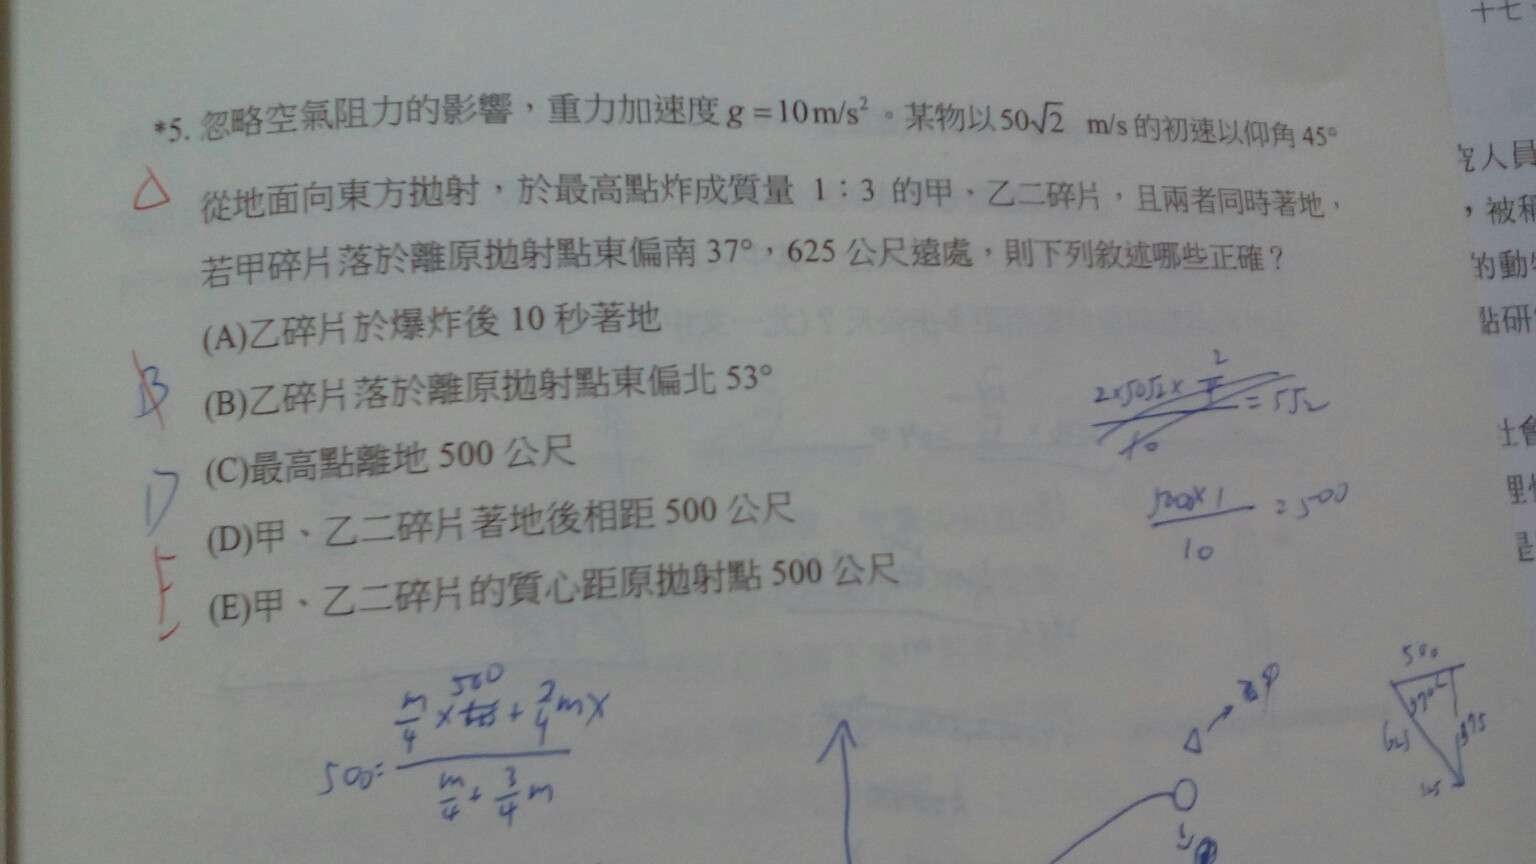 十七、
*5. 忽略空氣阻力的影響，重力加速度 g = 10 m/s²。某物以 50√2 m/s 的初速以仰角 45°
從地面向東方拋射，於最高點炸成質量 1：3 的甲、乙二碎片，且兩者同時著地，
若甲碎片落於離原拋射點東偏南 37°，625 公尺遠處，則下列敘述哪些正確？
(A)乙碎片於爆炸後 10 秒著地
B (B)乙碎片落於離原拋射點東偏北 53°
(C)最高點離地 500 公尺
D (D)甲、乙二碎片著地後相距 500 公尺
E (E)甲、乙二碎片的質心距原拋射點 500 公尺
究人員
，被稱
的動
點研
社會
是
10
500×1
= 500
10
500
37°
625
375
500 =
m/4 + 3/4 m